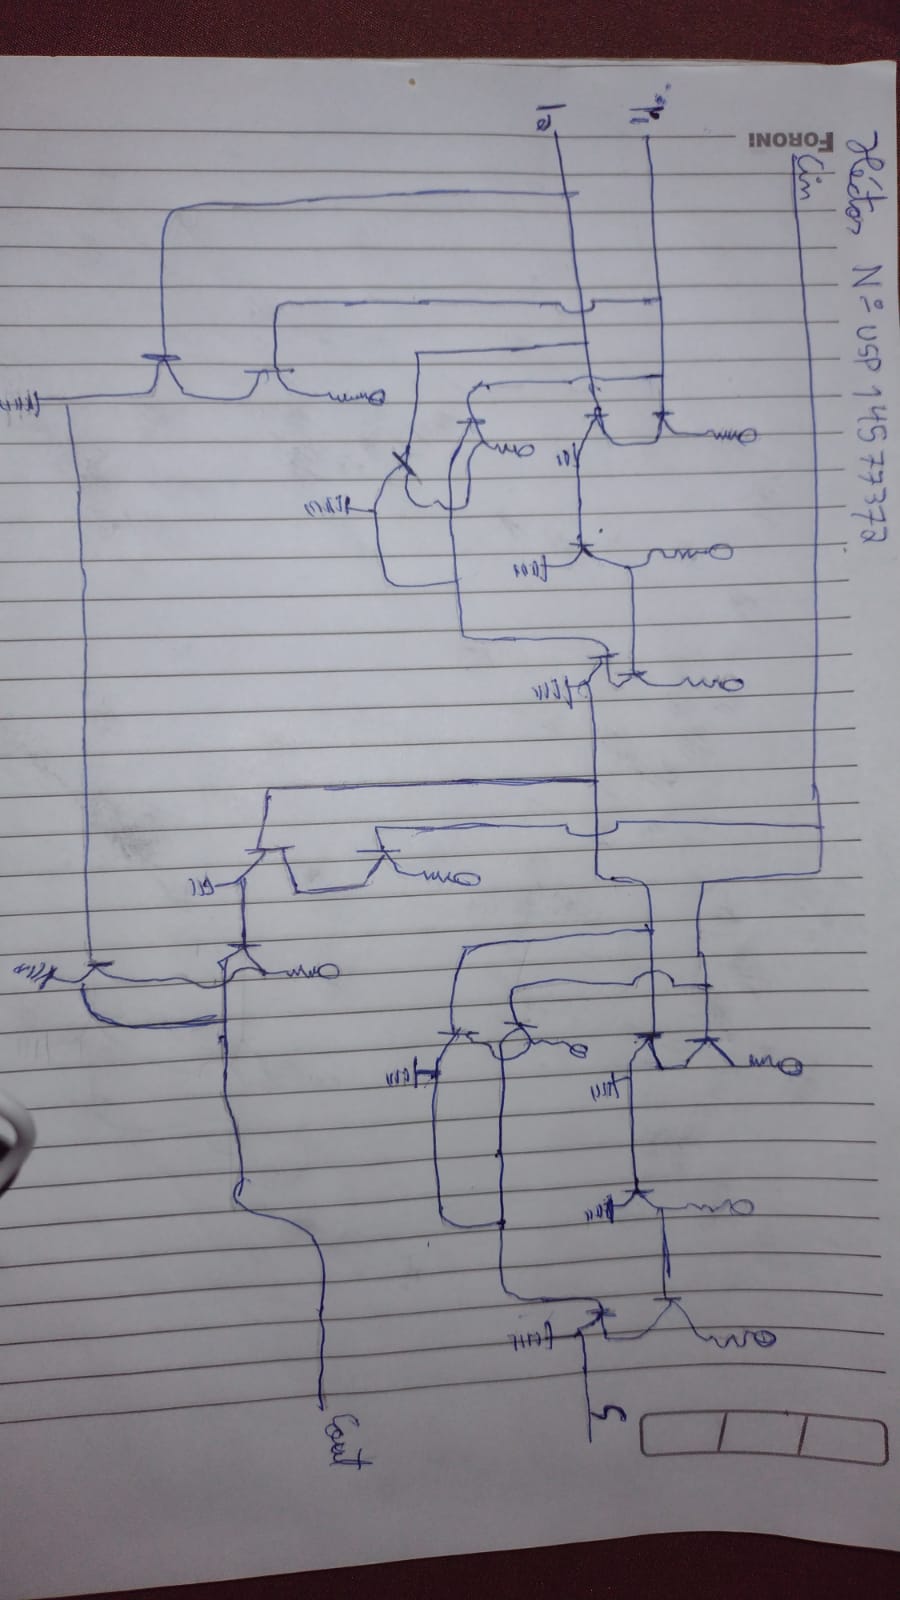 Héctor Nº USP 14577372
FORONI
Cin
S
Cout